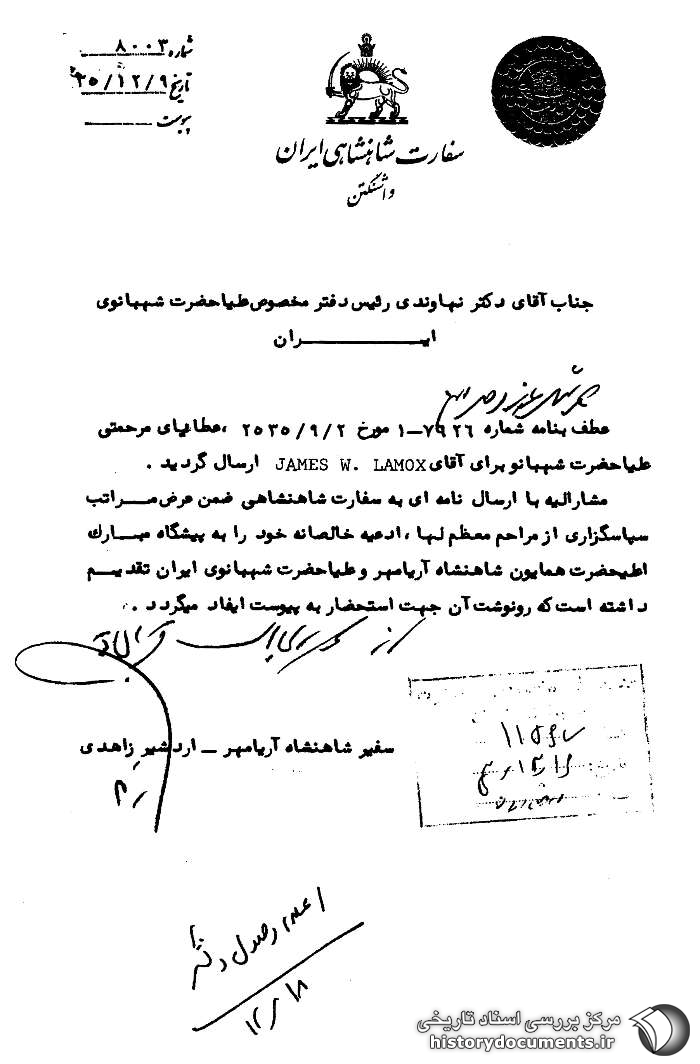 شماره ۸۰۰۳
تاریخ ۳۵/۱۲/۹
پیوست
سفارت شاهنشاهی ایران
واشنگتن
جناب آقای دکتر نهاوندی رئیس دفتر مخصوص علیاحضرت شهبانوی
ایـــــــران
عطف بنامه شماره ۷۹۲۶–۱ مورخ ۲۵۳۵/۹/۲ ،عطایای مرحمتی
علیاحضرت شهبانو برای آقای JAMES W. LAMOX ارسال گردید .
مشارالیه با ارسال نامه ای به سفارت شاهنشاهی ضمن عرض مـراتب
سپاسگزاری از مراحم معظم لها ،ادعیه خالصانه خود را به پیشگاه مبـارك
اعلیحضرت همایون شاهنشاه آریامهر و علیاحضرت شهبانوی ایران تقدیـم
داشته است که رونوشت آن جهت استحضار به پیوست ایفاد میگردد .
سفیر شاهنشاه آریامهر – اردشیر زاهدی
۱۲/۱۸
مرکز بررسی اسناد تاریخی
historydocuments.ir